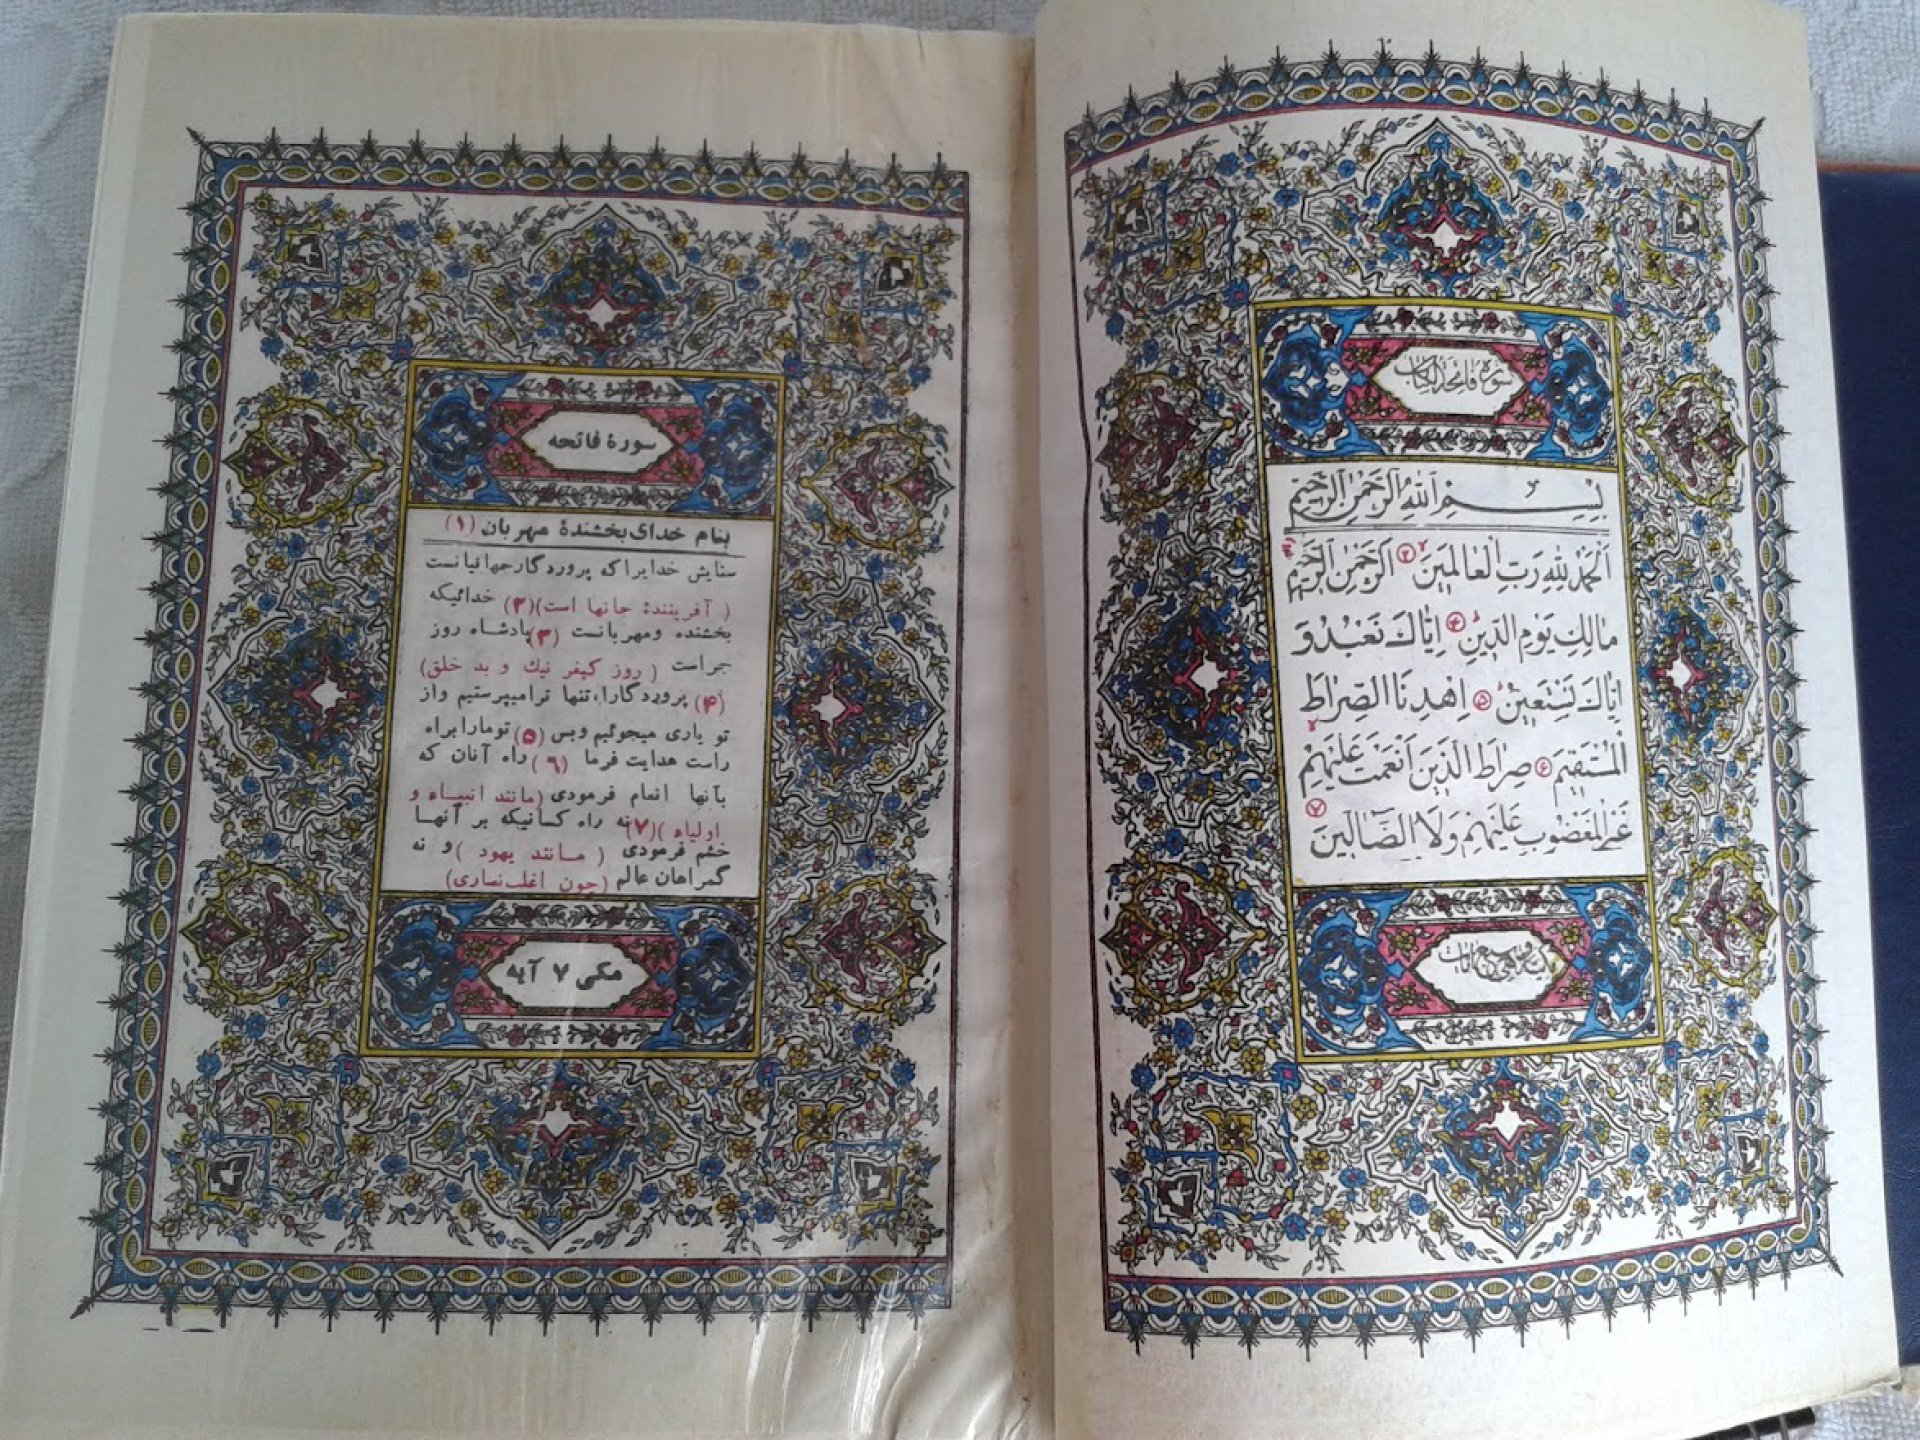 سورة فاتحة الكتاب
بِسْمِ ٱللّٰهِ ٱلرَّحْمٰنِ ٱلرَّحِيمِ
اَلْحَمْدُ لِلّٰهِ رَبِّ الْعَالَمِينَ ۲ اَلرَّحْمٰنِ الرَّحِيمِ ۳
مَالِكِ يَوْمِ الدِّينِ ۴ اِيَّاكَ نَعْبُدُ وَ
اِيَّاكَ نَسْتَعِينُ ۵ اِهْدِنَا الصِّرَاطَ
الْمُسْتَقِيمَ ۶ صِرَاطَ الَّذِينَ اَنْعَمْتَ عَلَيْهِمْ
غَيْرِ الْمَغْضُوبِ عَلَيْهِمْ وَلَا الضَّالِّينَ ۷
سورهٔ فاتحه
بنام خدای بخشندهٔ مهربان (۱)
ستایش خدایراکه پروردگارجهانیانست
( آفرینندهٔ جانها است)(۲) خدائیکه
بخشنده ومهربانست (۳)پادشاه روز
جزاست ( روز کیفر نیک و بد خلق)
(۴) پروردگارا، تنها ترامیپرستیم واز
تو یاری میجوئیم وبس (۵) تومارابراه
راست هدایت فرما (۶) راه آنان که
بآنها انعام فرمودی (مانند انبیاء و
اولیاء )(۷) نه راه کسانیکه بر آنها
خشم فرمودی ( مانند یهود ) و نه
گمراهان عالم (چون اغلب نصاری)
مکی ۷ آیه